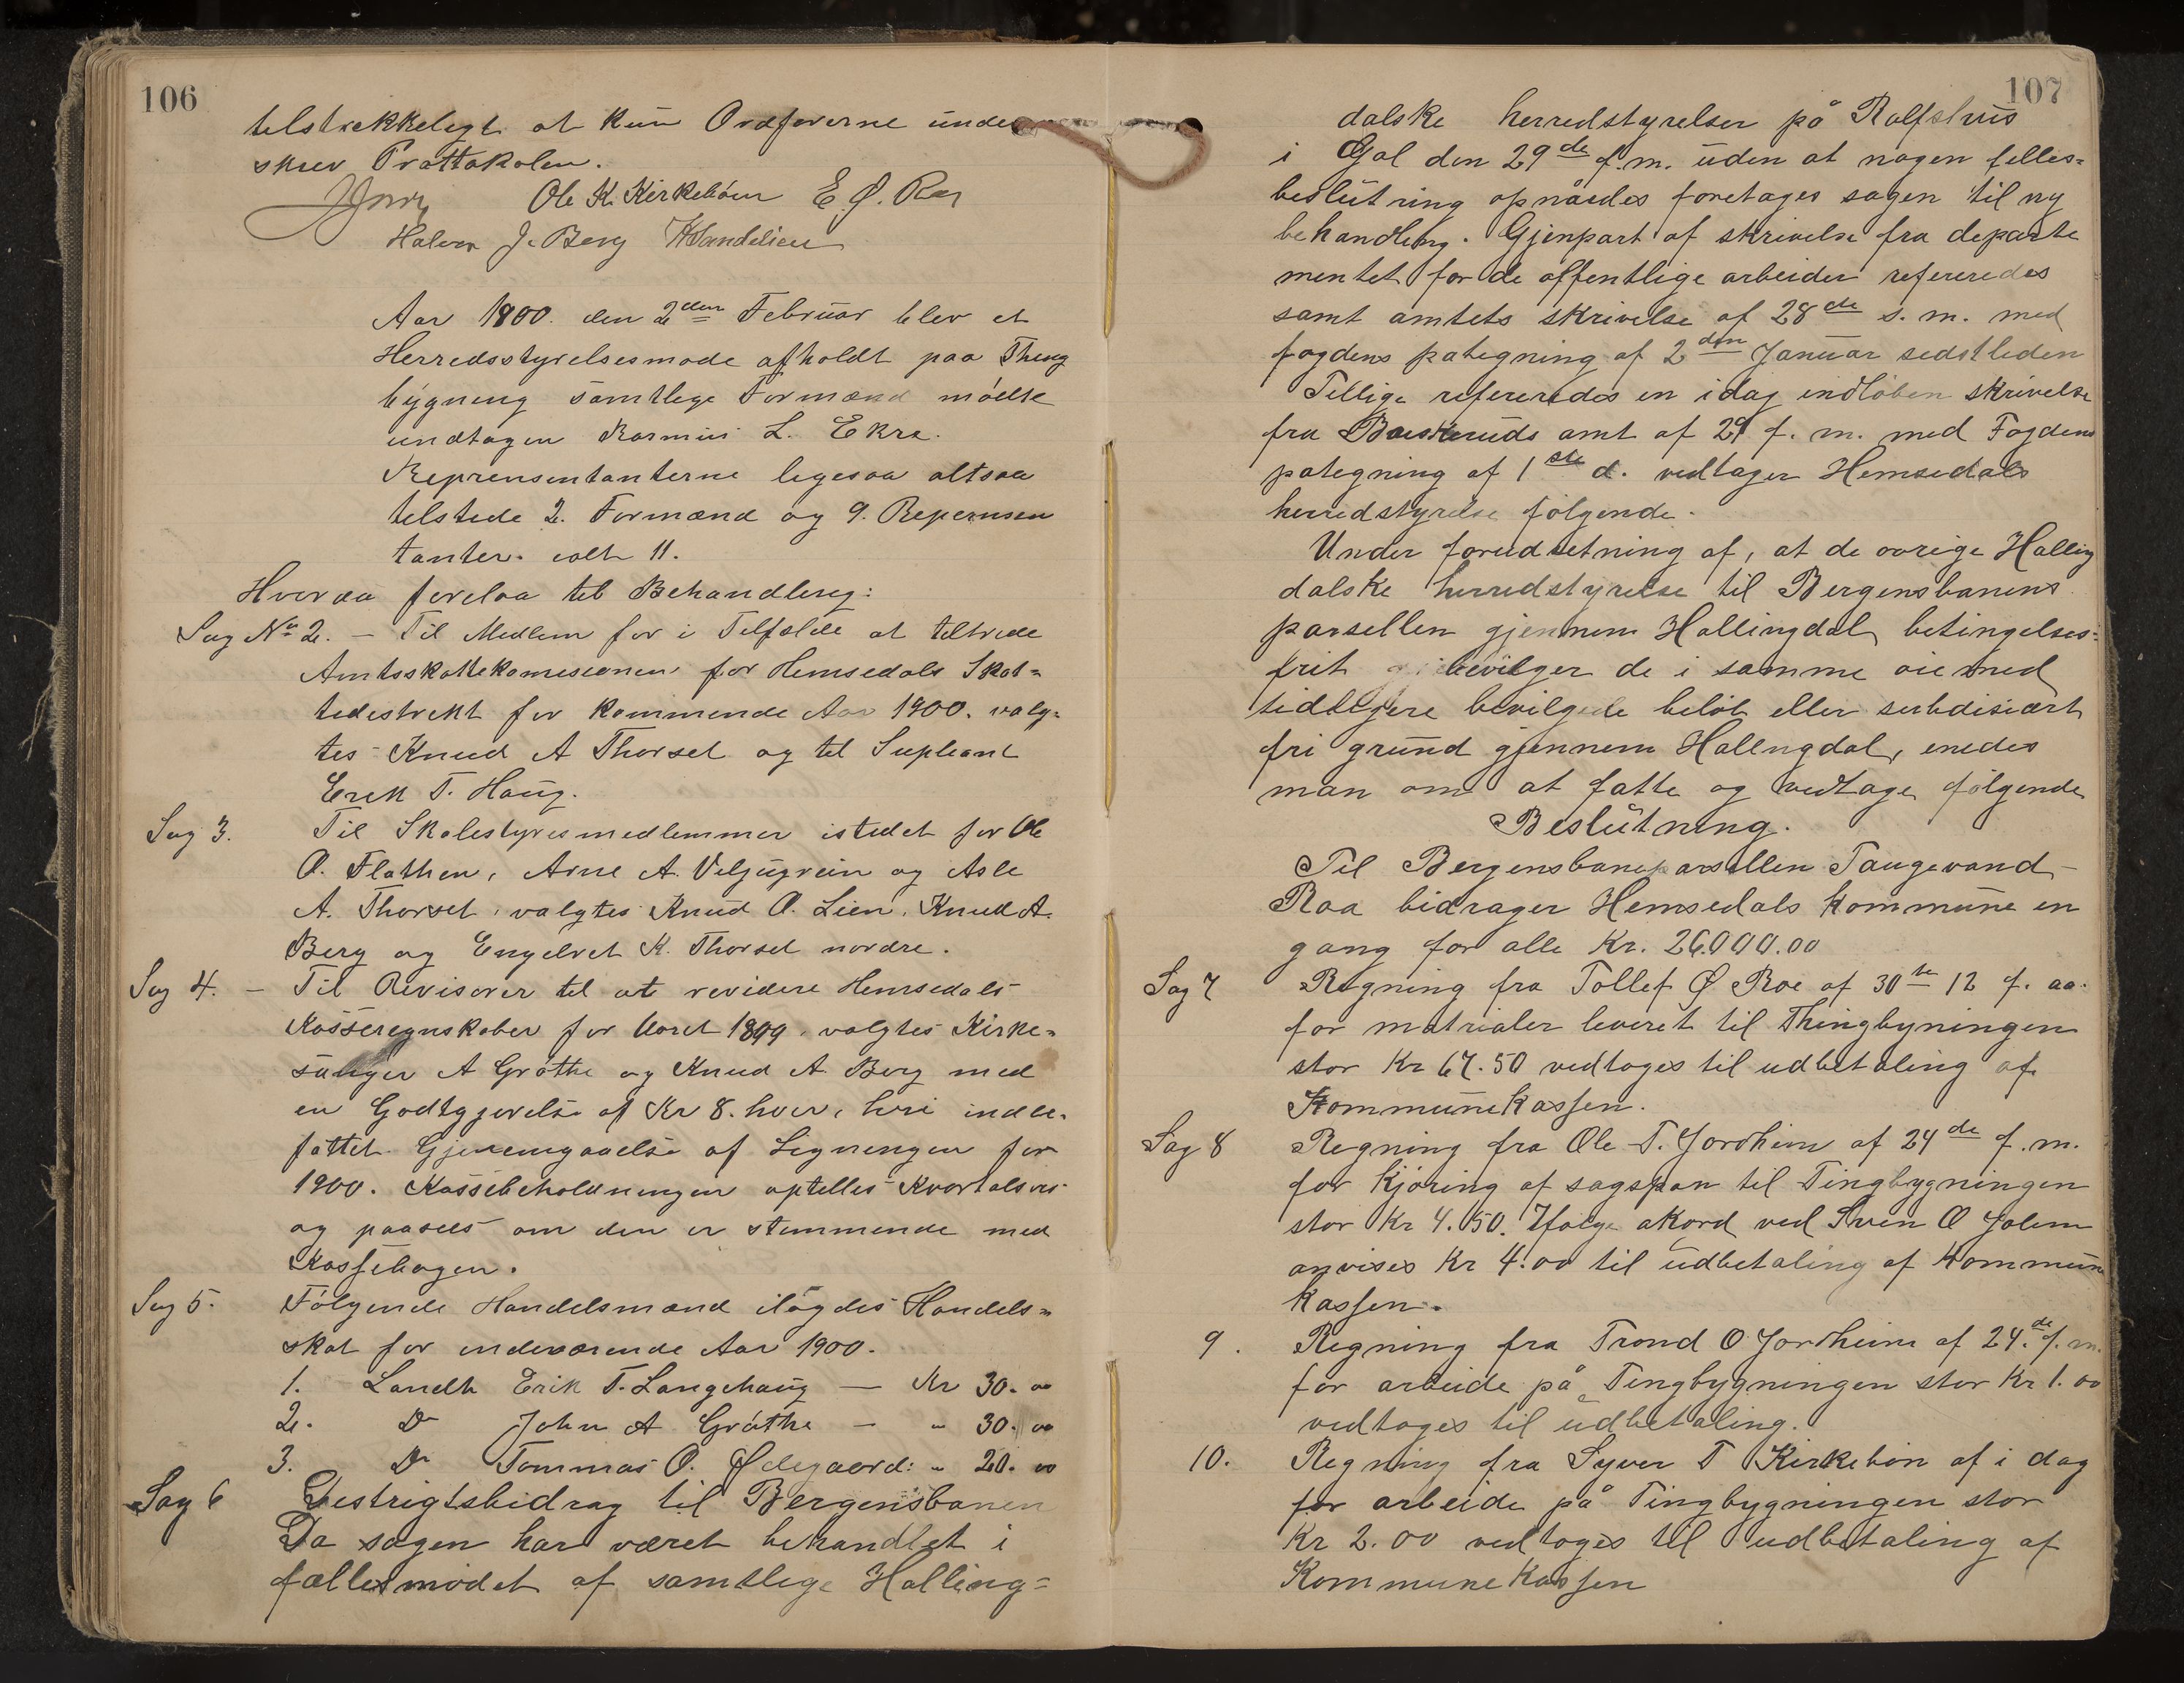 106
telstrekkeligt at kun Ordførerne under
skrev Prottokolen.
Ole K. Kirkebøen E. Ø. Roe
Halvor J. Berg
Aar 1900. den 2den Februar blev et
Herredsstyrelsesmøde afholdt paa Thing
bygning samtlege Formænd mødte
undtagen Rasmus L. Ekre.
Reprensentanterne legesaa altsaa
telstede 2. Formænd og 9. Repernsen
tanter. ialt 11.
Hvorpaa forelaa tel Behandleng:
Sag No 2. — Til Medlem for i Telfælde at teltrede
Amtsskattekomesionen for Hemsedals Skat=
tedestrekt for kommende Aar 1900. valg=
tes Knud A Thorset og tel Supleant
Erek T. Haug.
Sag 3. Til Skolestyresmedlemmer istedet for Ole
O. Flathen, Arne A. Veljugrein og Asle
A. Thorset, valgtes Knud O. Lien, Knud A.
Berg og Engelret K. Thorset nordre.
Sag 4. — Til Revisorer tel at revidere Hemsedals
Kasseregnskaber for Aaret 1899, valgtes Kirke=
sanger A Grøthe og Knud A Berg med
en Godtgjørelse af Kr 8. hver, heri indbe=
fattet Gjenemgaaelse af Legningen for
1900. Kassebeholdningen optelles Kvartalsves
og paasees om den er stemmende med
Kassebogen.
Sag 5. Følgende Handelsmænd ilagdes Handels=
skat for indeværende Aar 1900.
1. Landh Erik T. Langehaug — Kr 30.00
2. Do John A Grøthe — " 30.00
3. Do Tommas O. Ødegaard: " 20.00
Sag 6 Destrigtsbidrag til Bergensbanen
Da sagen har været behandlet i
fællesmødet af samtlege Halling=
107
dalske herredstyrelser på Rolfshus
i Gol den 29de f.m. uden at nogen felles=
beslutning opnåedes foretages sagen til ny
behandling. Gjenpart af skrivelse fra departe
mentet for de offentlige arbeider refereredes
samt amtets skrivelse af 28de s. m. med
fogdens pategning af 2den Januar sidstleden
Tillige refereredes en idag indløben skrivelse
fra Buskeruds amt af 29 f. m. med Fogdens
pategning af 1ste d. vedtager Hemsedals
herredstyrelse følgende.
Under forudsetning af, at de øvrige Halling
dalske herredstyrelse til Bergensbanens
parsellen gjennem Hallingdal betingelses=
frit bevilger de i samme øiemed
tidligere bevilgede beløb eller subdisiært
fri grund gjennem Hallengdal, enedes
man om at fatte og vedtage følgende
Beslutning.
Til Bergensbaneparsellen Taugevand —
Roa bidrager Hemsedals kommune en
gang for alle Kr. 26.000.00
Sag 7 Regning fra Tollef Ø Roe af 30te 12 f. aa.
for matrialer leveret til Thingbyningen
stor Kr 67.50 vedtoges til udbetaling af
Kommunekassen.
Sag 8 Regning fra Ole T. Jordheim af 24de f.m.
for kjøring af sagspon til Tingbygningen
stor Kr 4.50. Ifølge akord ved Sven O Jolem
anvises Kr 4.00 til udbetaling af Kommune
kassen.
9. Regning fra Trond O Jordheim af 24.de f. m.
for arbeide på Tingbygningen stor Kr 1.00
vedtoges til udbetaling.
10. Regning fra Syver T Kirkebøn af i dag
for arbeide på Tingbygningen stor
Kr 2.00 vedtoges til udbetaling af
Kommunekassen